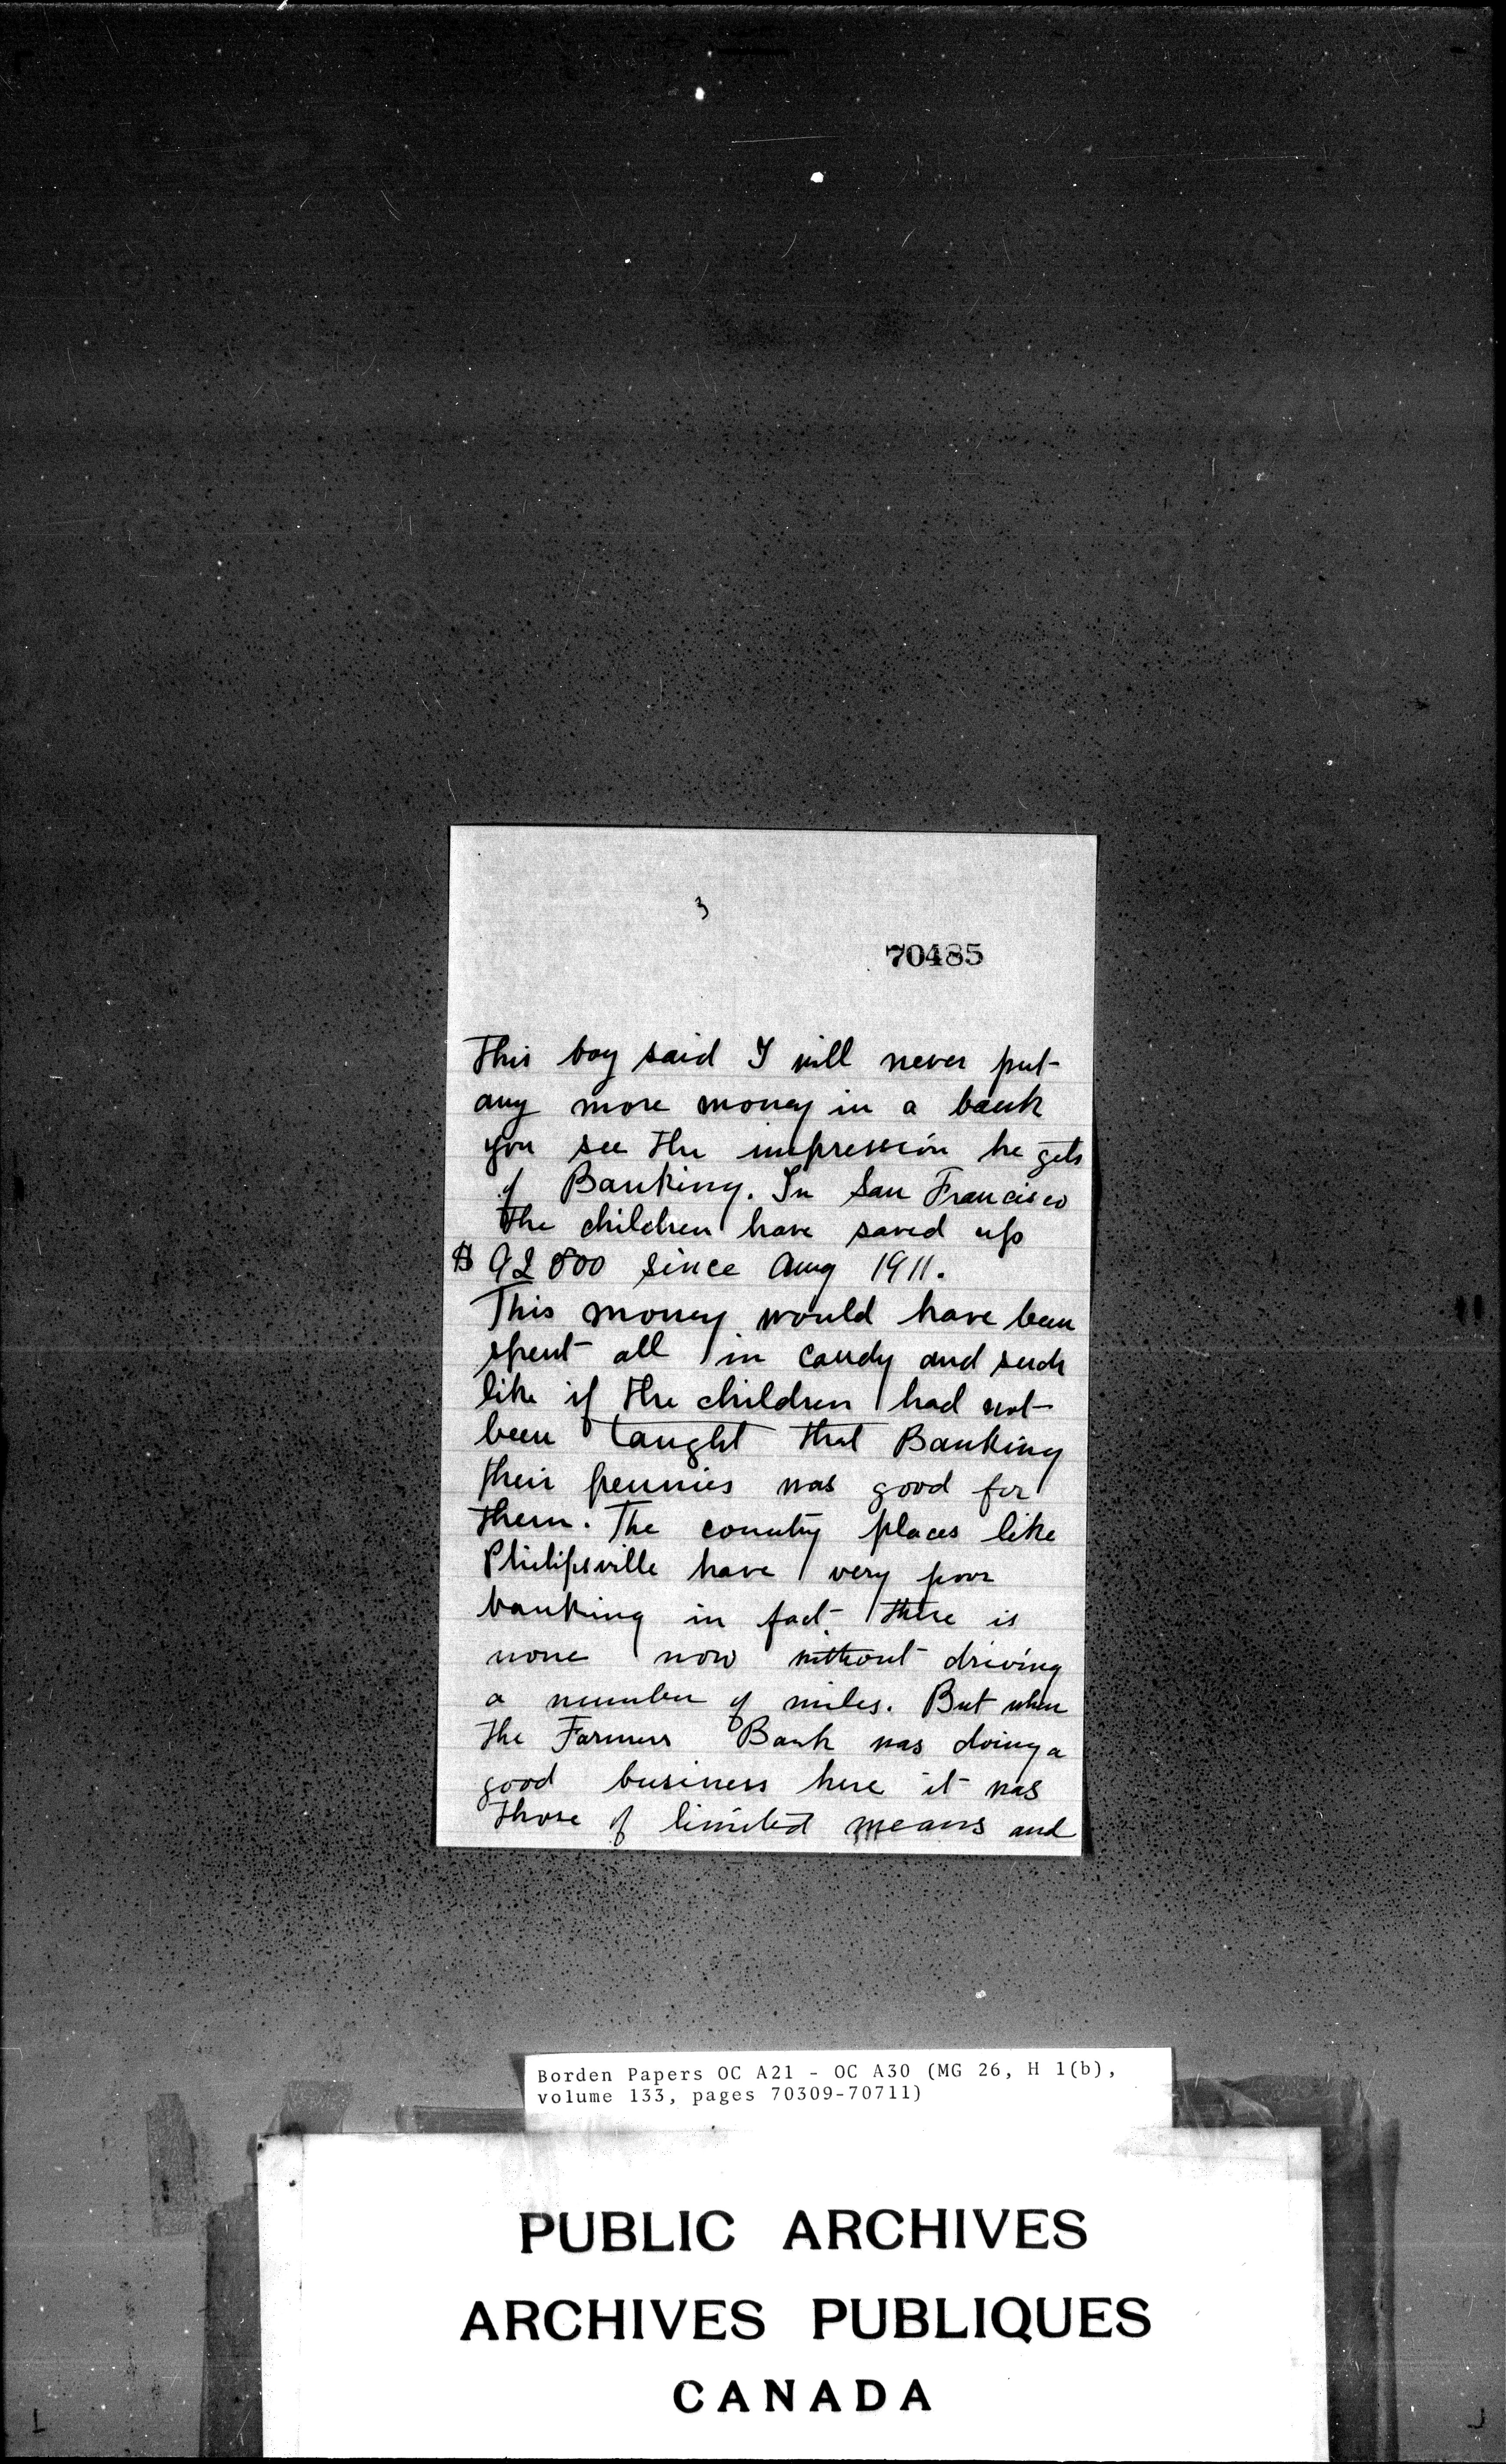 3
70485
This boy said I will never put
any more money in a bank
you see the impression he gets
of Banking. In San Francisco
the children have saved up
$ 92 800 since Aug 1911.
This money would have been
spent all in candy and such
like if the children had not
been taught that Banking
their pennies was good for
them. The country places like
Philipsville have very poor
banking in fact there is
none now without driving
a number of miles. But when
the Farmers Bank was doing a
good business here it was
those of limited means and
Borden Papers OC A21 - OC A30 (MG 26, H 1(b),
volume 133, pages 70309-70711)
PUBLIC ARCHIVES
ARCHIVES PUBLIQUES
CANADA